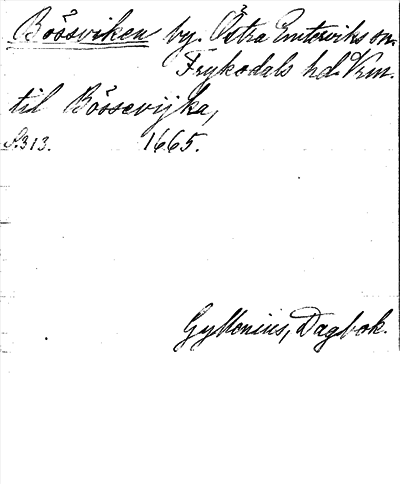 Bössviken by. Östra Emterviks sn.
Frykodals hd. Vrm.
til Bössevijka,
S.313. 1665.
Gyllenius, Dagbok.